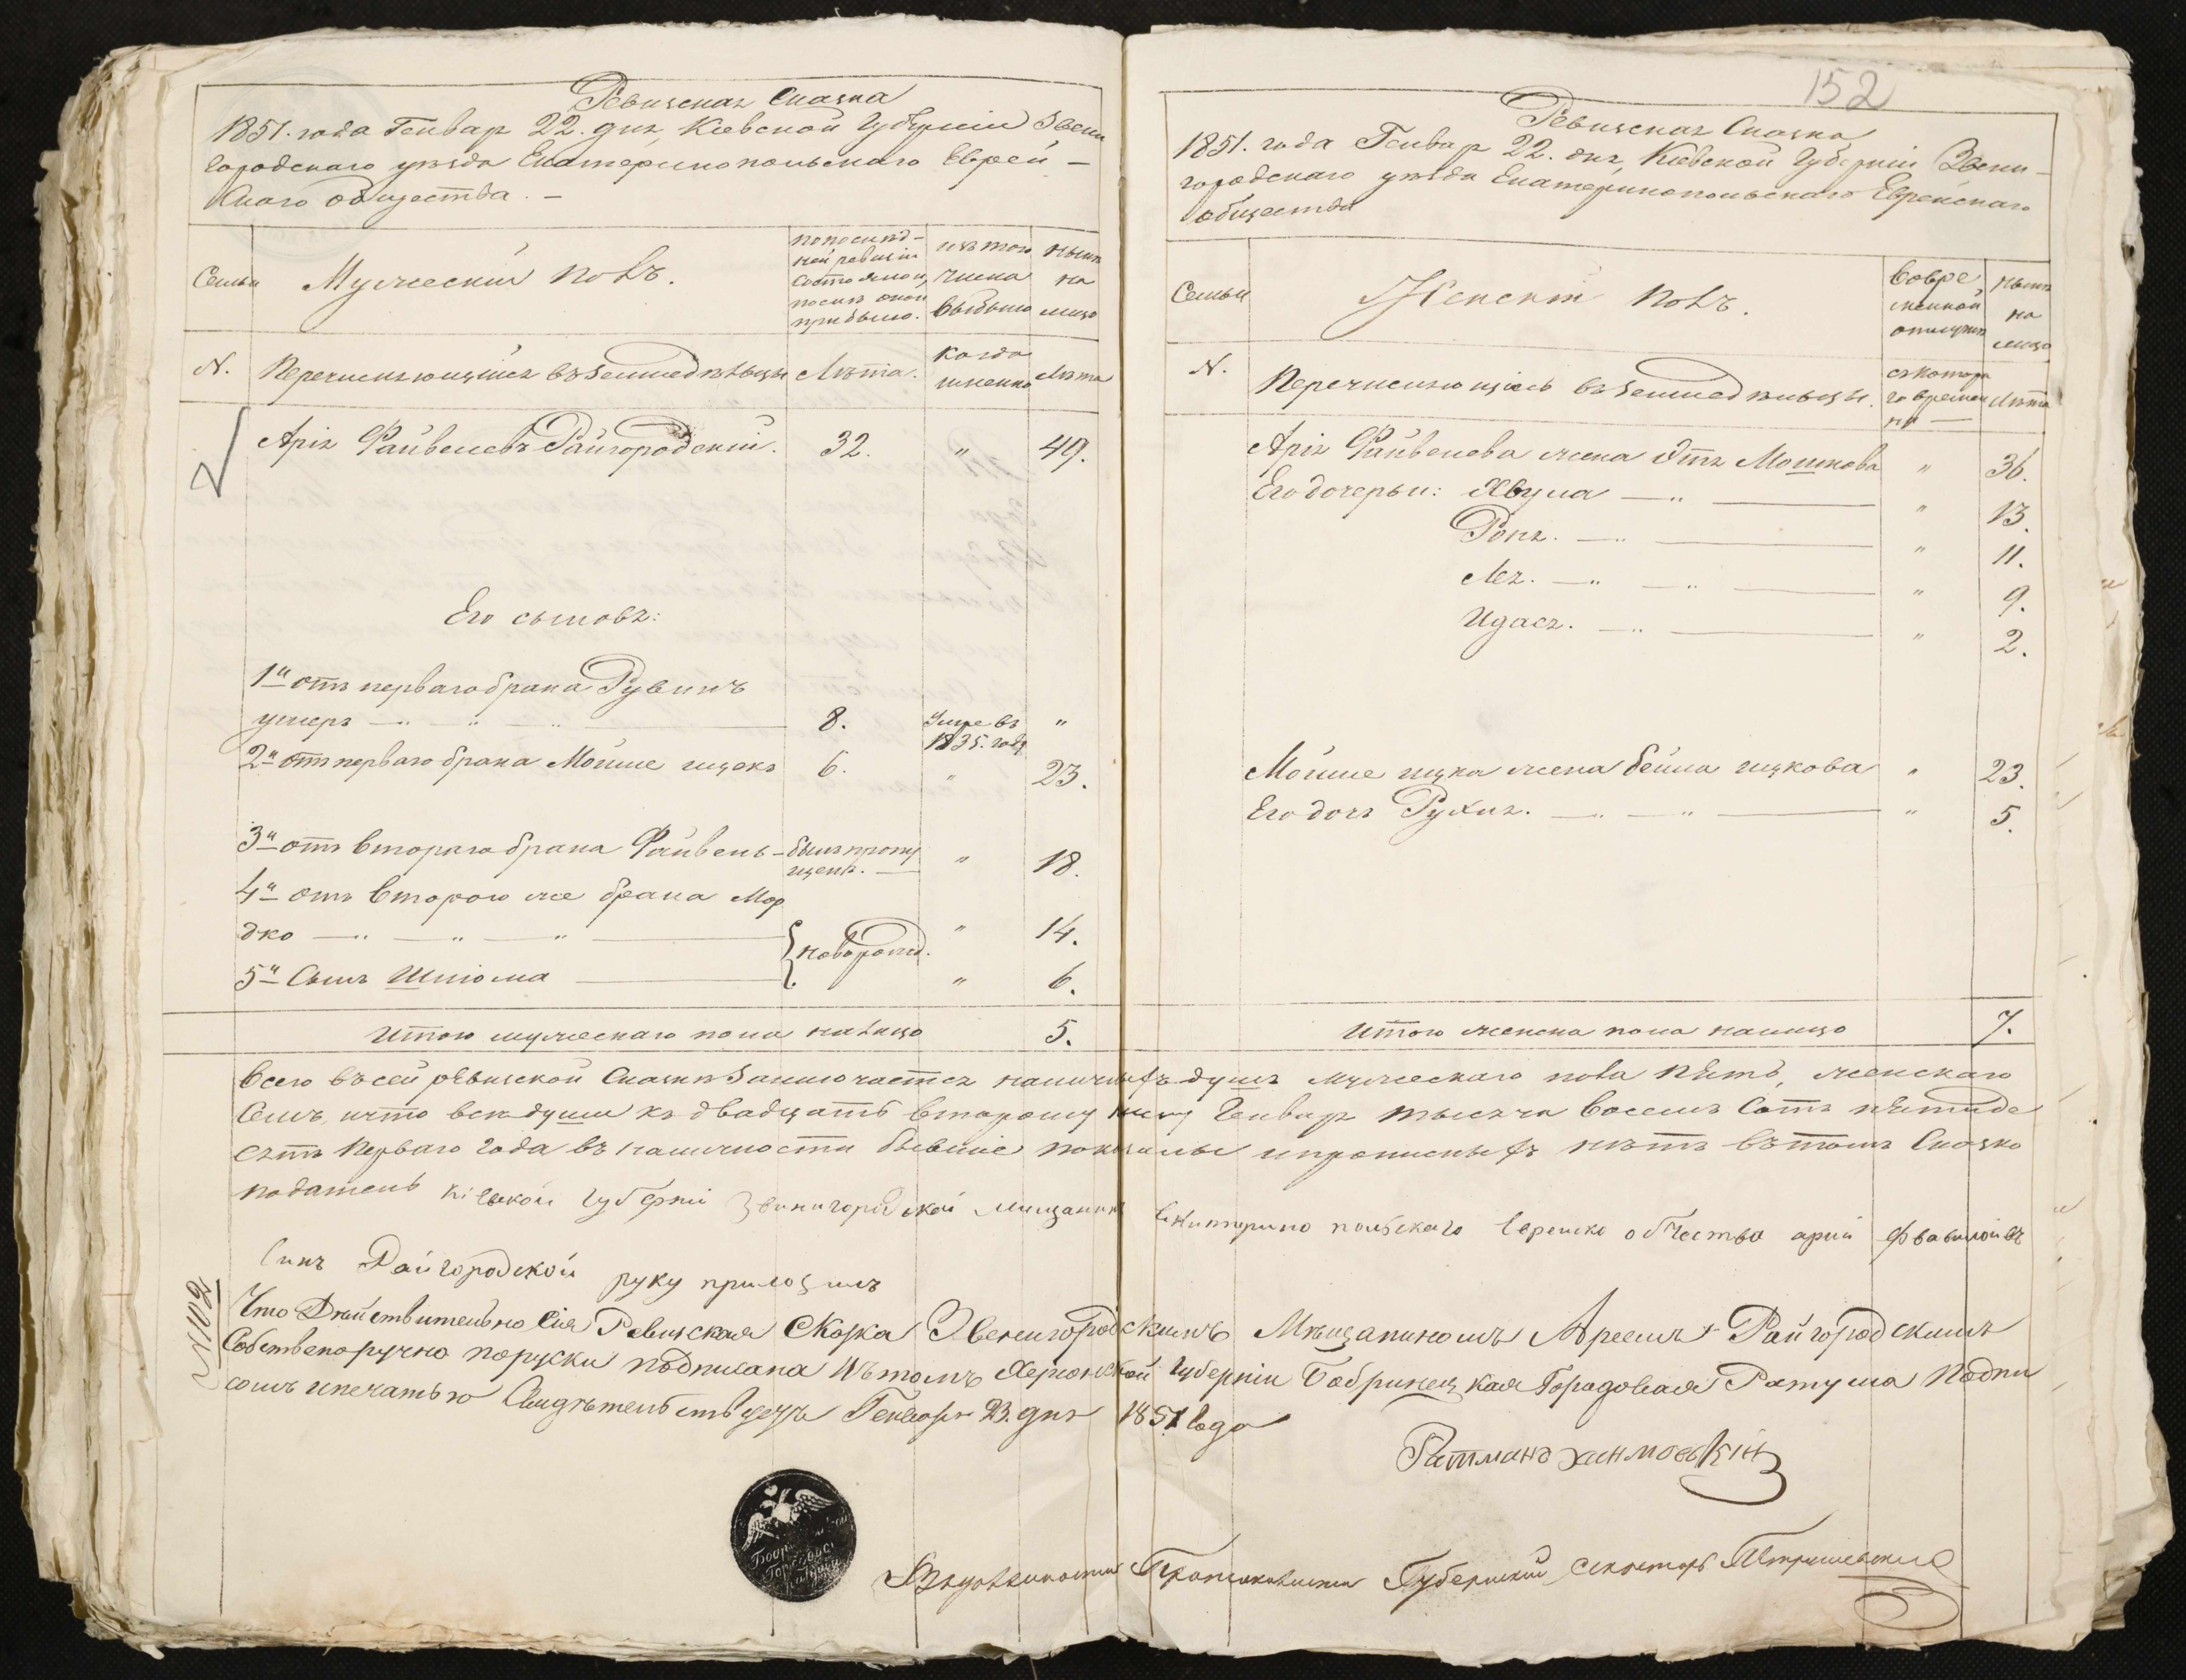 Ревизская Сказка
1851. года Генвар 22. дня, Киевской Губернии Звени
городскаго уезда Екатеринопольскаго Еврей-
скаго общества. -
Семьи
Мужеский полъ.
по послед-
ней ревизіи
состояло и,
после оной
прибыло.
изъ того
числа
выбыло
ныне
на
лицо
N.
Перечисляющійся въ земледельцы
Лета.
когда
именно
Лета
Арія Файвелевъ Райгородскій.
32.
"
49.
Его сыновя:
1й отъ перваго брака Рувинъ
умеръ — " — " — " —
8.
Умре въ
1835. году
"
2й отъ перваго брака Мойше ицекъ
6.
"
23.
3й отъ втораго брака Файвель-
былъ пропу
щенъ. —
"
18.
4й отъ второго же брака Мор
дко — " — " — " —
новорожд.
"
14.
5й Сынъ Шліома —
"
6.
Итого мужескаго пола налицо
5.
152
Ревизская Сказка
1851. года Генвар 22. дня, Киевской Губерніи Звени-
городскаго уезда Екатеринопольскаго Еврейскаго
общества
Семьи
Женскій полъ.
во вре
менной
отлучке
ныне
на
лицо
N.
Перечисляющіясь въ земледельцы.
съ котора
го времен
ни —
Лета
Арія Файвелева жена Этя Мошкова
"
36.
Его дочерьи: Хвула — " —
"
13.
Роня. — " —
"
11.
Лея. — " — " —
"
9.
Идася. — " —
"
2.
Мойше ицка жена бейла ицкова
"
23.
Его дочъ Рухля. — " — " —
"
5.
Итого женска пола налицо
7.
Всего въ сей ревизской Сказке Заключается наличныхъ душъ мужескаго пола пять, женскаго
Семъ, и что все души къ двадцать второму числу Генвар тысяча восемь Сотъ пятиде
сятъ Перваго года въ наличности бывшие показаны и прописныхъ нетъ въ томъ Сказко
податель Кіевкой Губерніи Звиногородской мищанинъ Екитирино польскаго Еврейско обчества арий
синъ Райгородской руку приложилъ
N 102
Что Действительно Сія Ревизская Сказка Звенигородскимъ Мещаниномъ Ареемъ Райгородскимъ
Собственоручно поруски подписана въ томъ Херсонской Губерніи Бобринецкая Городовая Ратуша Подпи
сомъ и печатью Свидетельствуетъ Генваря 23. дня 1851 года
Ратманъ
Губернский Секретарь